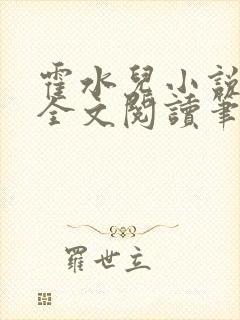 霍水兒小說
全文閱讀筆
羅世立